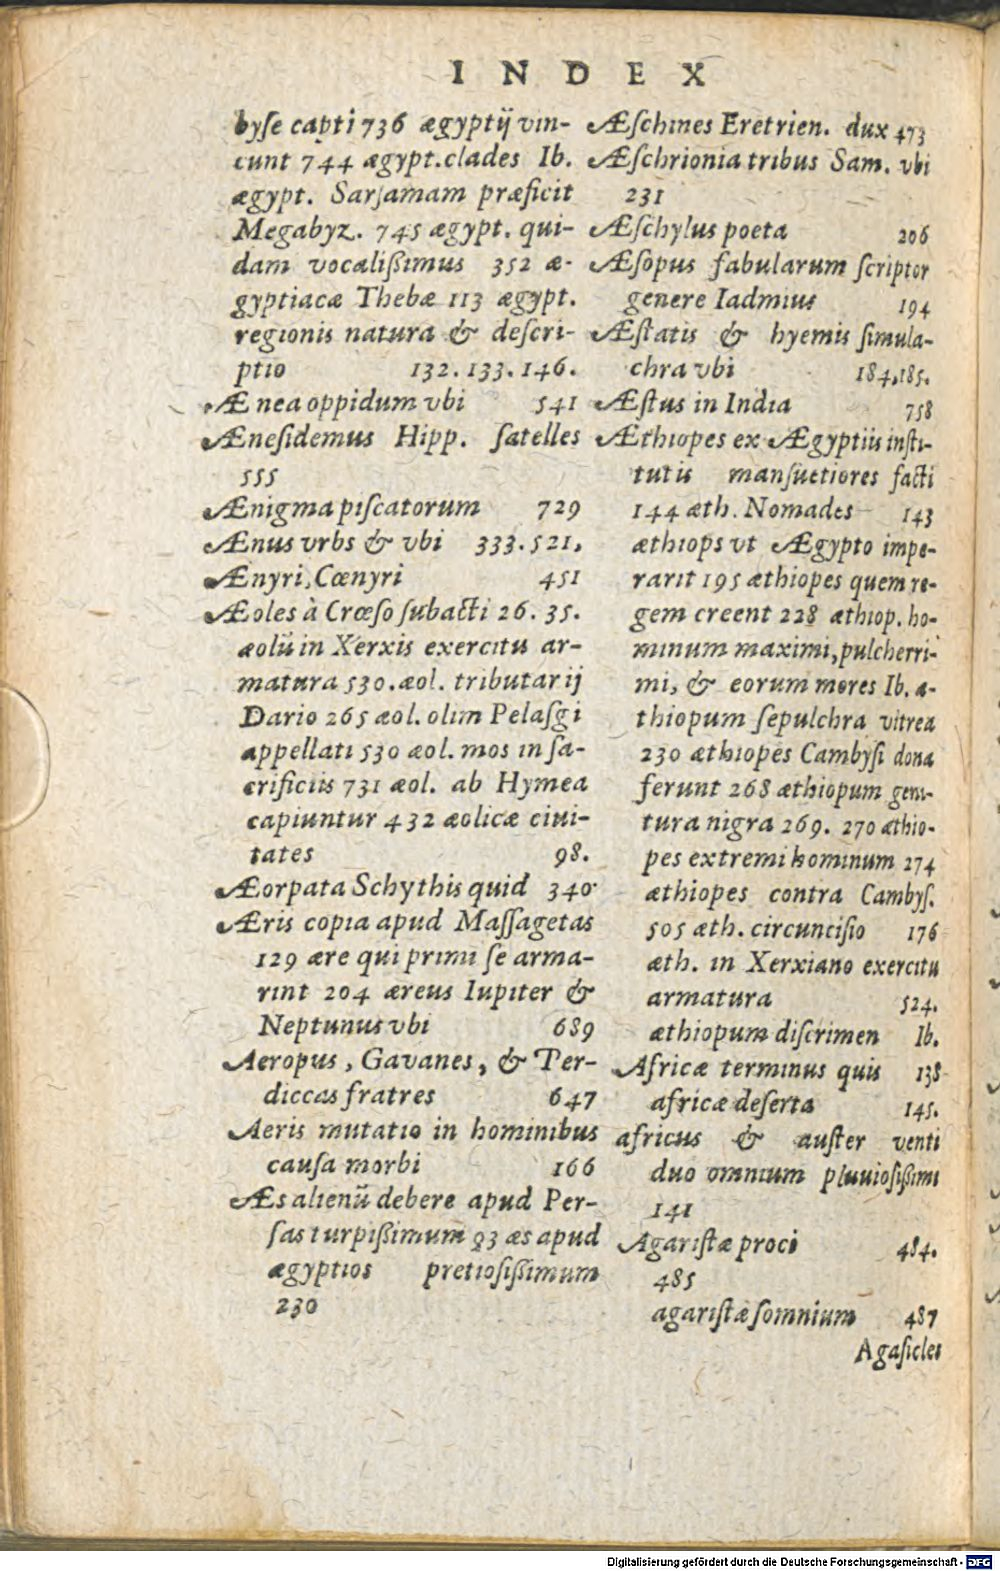 INDEX
byſe capti 736 ægyptij vin-
cunt 744 ægypt. clades Ib.
ægypt. Sarſamam præficit
Megabyz. 745 ægypt. qui-
dam vocalißimus 352 æ-
gyptiacæ Thebæ 113 ægypt.
regionis natura & deſcri-
ptio 132. 133. 146.
Ænea oppidum vbi 541
Æneſidemus Hipp. ſatelles
555
Ænigma piſcatorum 729
Ænus vrbs & vbi 333. 521,
Ænyri, Cœnyri 451
Æoles à Crœſo ſubacti 26. 35.
æolũ in Xerxis exercitu ar-
matura 530. æol. tributarij
Dario 265 æol. olim Pelaſgi
appellati 530 æol. mos in ſa-
crificiis 731 æol. ab Hymea
capiuntur 432 æolicæ ciui-
tates 98.
Æorpata Schythis quid 340.
Æris copia apud Maſſagetas
129 ære qui primi ſe arma-
rint 204 æreus Iupiter &
Neptunus vbi 689
Aeropus, Gavanes, & Per-
diccas fratres 647
Aeris mutatio in hominibus
cauſa morbi 166
Æs alienũ debere apud Per-
ſas turpißimum 93 æs apud
ægyptios pretioſißimum
230
Æſchines Eretrien. dux 473
Æſchrionia tribus Sam. vbi
231
Æſchylus poeta 206
Æſopus fabularum ſcriptor
genere Iadmius 194
Æſtatis & hyemis ſimula-
chra vbi 184,185.
Æſtus in India 758
Æthiopes ex Ægyptiis inſti-
tutis manſuetiores facti
144 æth. Nomades 143
æthiops vt Ægypto impe-
rarit 195 æthiopes quem re-
gem creent 228 æthiop. ho-
minum maximi, pulcherri-
mi, & eorum mores Ib. æ-
thiopum ſepulchra vitrea
230 æthiopes Cambyſi dona
ferunt 268 æthiopum geni-
tura nigra 269. 270 æthio-
pes extremi hominum 274
æthiopes contra Cambyſ.
505 æth. circunciſio 176
æth. in Xerxiano exercitu
armatura 524.
æthiopum diſcrimen Ib.
Africæ terminus quis 138
africæ deſerta 145.
africus & auſter venti
duo omnium pluuioſißimi
141
Agariſtæ proci 484.
485
agariſtæ ſomnium 487
Agaſicles
Digitalisierung gefördert durch die Deutsche Forschungsgemeinschaft - DFG